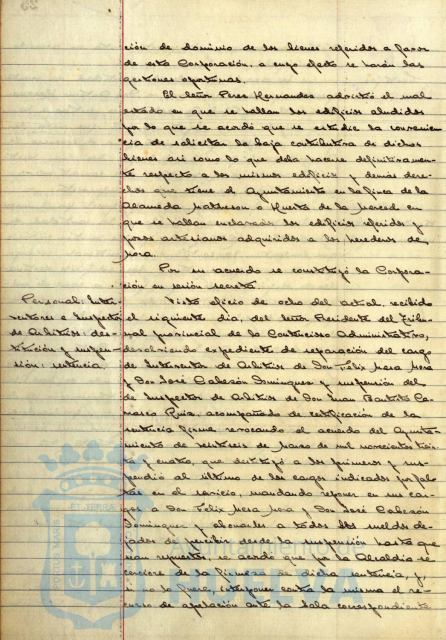 ción de dominio de los bienes referidos a favor
de esta Corporación, a cuyo efecto se harán las
gestiones oportunas.
El señor Perez Hernandez advirtió el mal
estado en que se hallan los edificios aludidos
por lo que se acordó que se estudie la convenien-
cia de solicitar la baja contributiva de dichos
bienes asi como lo que deba hacerse definitivamen-
te respecto a los mismos edificios y demás dere-
chos que tiene el Ayuntamiento en la finca de la
Alameda Matheson o Huerto de la Merced en
que se hallan enclavados los edificios referidos y
pozos artesianos adquiridos a los herederos de
Mora.
Por su acuerdo se constituyó la Corpora-
ción en sesión secreta.
Personal: Inter-
ventores e Inspector
de Arbitrios: des-
titución y suspen-
sión: sentencia
Visto oficio de ocho del actual, recibido
el siguiente dia, del señor Presidente del Tribu-
nal provincial de lo Contencioso Administrativo,
devolviendo expediente de separación del cargo
de Interventor de Arbitrios de Don Félix Mesa Mesa
y Don José Cabezón Dominguez y suspensión del
de Inspector de Arbitrios de Don Juan Bautista Ca-
rrasco Ruiz, acompañado de certificación de la
sentencia firme revocando el acuerdo del Ayunta-
miento de veintiseis de Marzo de mil novecientos trein-
ta y cuatro, que destituyó a los primeros y sus-
pendió al último de los cargos indicados por fal-
tas en el servicio, mandando reponer en sus car-
gos a Don Félix Mesa Mesa y Don José Cabezón
Dominguez y abonarles a todos los sueldos de-
jados de percibir desde la suspensión hasta que
sean repuestos, se acordó que por la Alcaldia se
cerciore de la firmeza de dicha sentencia, y
si no lo fuere, interponer contra la misma el re-
curso de apelación ante la Sala correspondiente